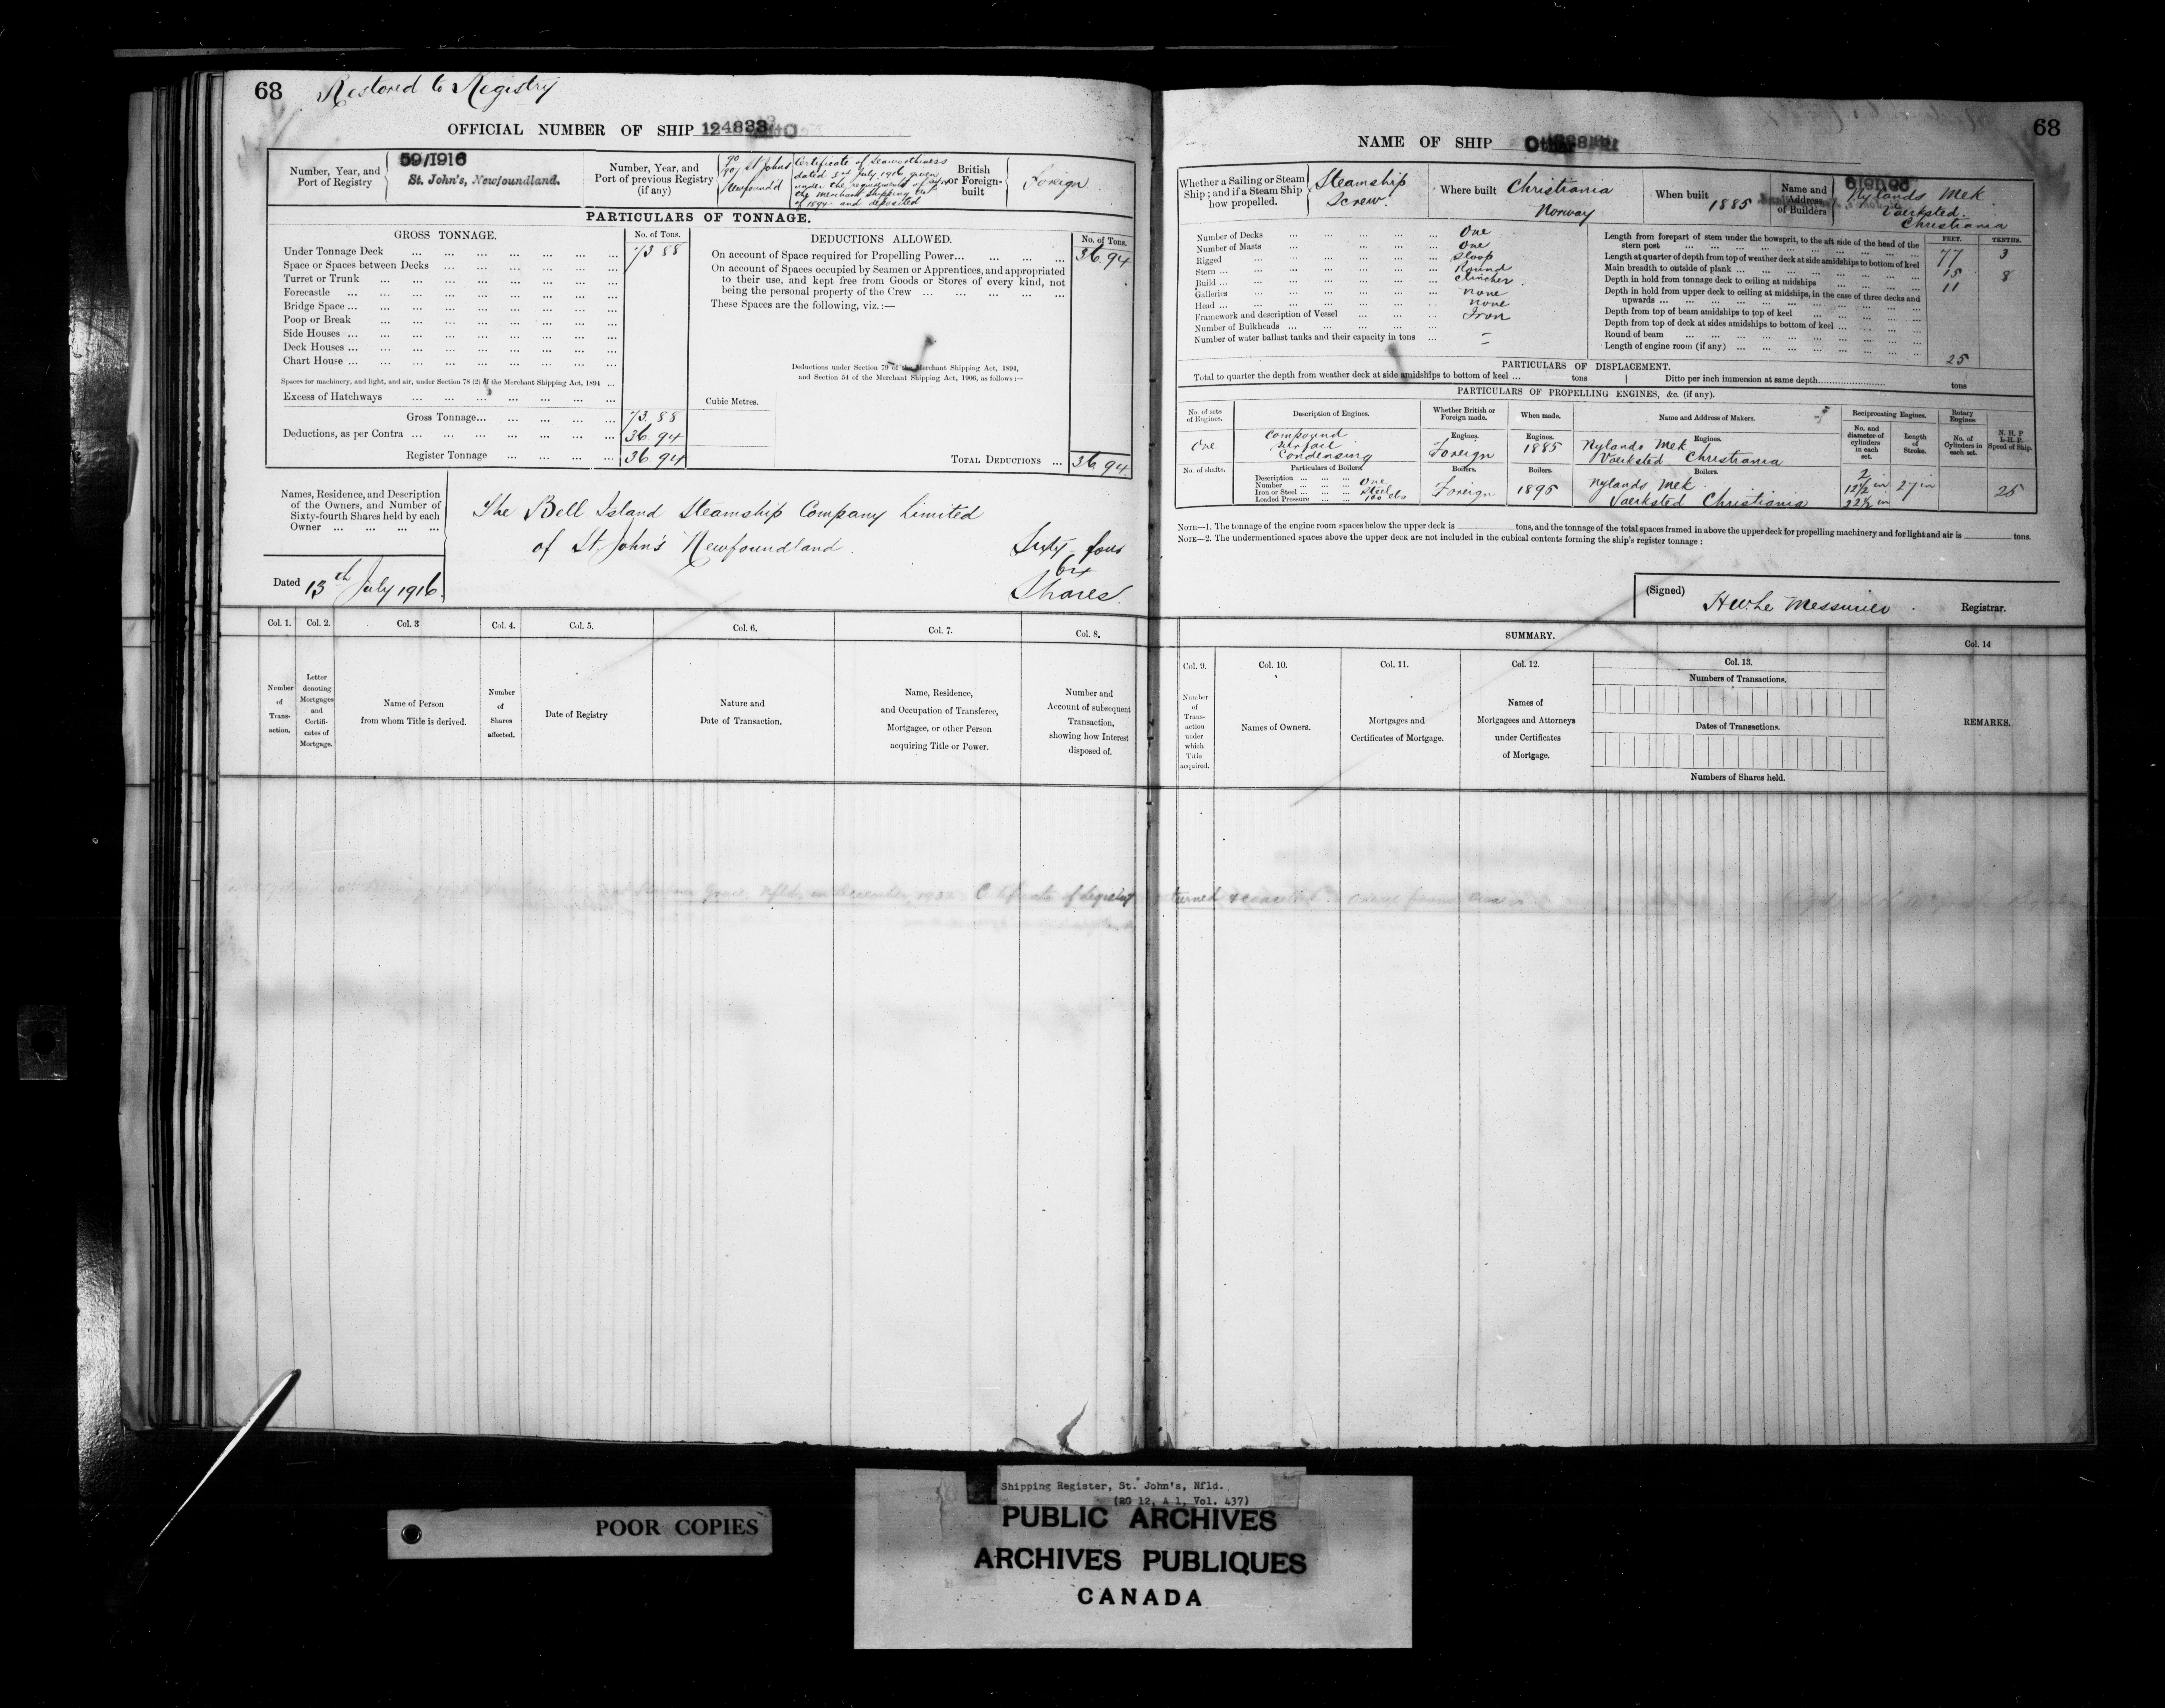 68 Restored to Registry
OFFICIAL NUMBER OF SHIP 124833
Number, Year, and Port of Registry
59/1916
St. John's, Newfoundland.
Number, Year, and Port of previous Registry (if any)
St Johns
Newfoundd
Certificate of Seaworthiness
dated 3rd July, 1916 given
under the requirements of
the Merchant Shipping Act
of 1894 and deposited
British or Foreign-built
Foreign
PARTICULARS OF TONNAGE.
GROSS TONNAGE.
No. of Tons.
Under Tonnage Deck 73 88
Space or Spaces between Decks
Turret or Trunk
Forecastle
Bridge Space
Poop or Break
Side Houses
Deck Houses
Chart House
Spaces for machinery, and light, and air, under Section 78 (2) of the Merchant Shipping Act, 1894
Excess of Hatchways
Gross Tonnage 73.88
Deductions, as per Contra 36.94
Register Tonnage 36.94
DEDUCTIONS ALLOWED.
No. of Tons.
On account of Space required for Propelling Power 36.94
On account of Spaces occupied by Seamen or Apprentices, and appropriated
to their use, and kept free from Goods or Stores of every kind, not
being the personal property of the Crew
These Spaces are the following, viz.:—
Deductions under Section 79 of the Merchant Shipping Act, 1894,
and Section 54 of the Merchant Shipping Act, 1906, as follows:—
Cubic Metres.
TOTAL DEDUCTIONS 36.94
Names, Residence, and Description
of the Owners, and Number of
Sixty-fourth Shares held by each
Owner
The Bell Island Steamship Company Limited
of St. John's Newfoundland
Sixty-four
64
Shares
Dated 13th July 1916.
Col. 1. Col. 2. Col. 3 Col. 4. Col. 5. Col. 6. Col. 7. Col. 8.
Number of Transaction.
Letter denoting Mortgages and Certificates of Mortgage.
Name of Person from whom Title is derived.
Number of Shares affected.
Date of Registry
Nature and Date of Transaction.
Name, Residence, and Occupation of Transferee, Mortgagee, or other Person acquiring Title or Power.
Number and Account of subsequent Transaction, showing how Interest disposed of.
68
NAME OF SHIP
Whether a Sailing or Steam Ship; and if a Steam Ship how propelled.
Steamship
Screw
Where built Christiania
Norway
When built 1885
Name and Address of Builders
Nylands Mek
Vaerksted.
Christiania
Number of Decks One
Number of Masts One
Rigged Sloop
Stern Round
Build Clincher
Galleries none
Head none
Framework and description of Vessel Iron
Number of Bulkheads —
Number of water ballast tanks and their capacity in tons —
FEET. TENTHS.
Length from forepart of stem under the bowsprit, to the aft side of the head of the stern post 77 3
Length at quarter of depth from top of weather deck at side amidships to bottom of keel
Main breadth to outside of plank 15 8
Depth in hold from tonnage deck to ceiling at midships 11
Depth in hold from upper deck to ceiling at midships, in the case of three decks and upwards
Depth from top of beam amidships to top of keel
Depth from top of deck at sides amidships to bottom of keel
Round of beam
Length of engine room (if any) 25
PARTICULARS OF DISPLACEMENT.
Total to quarter the depth from weather deck at side amidships to bottom of keel tons
Ditto per inch immersion at same depth tons
PARTICULARS OF PROPELLING ENGINES, &c. (if any).
No. of sets of Engines.
Description of Engines.
Whether British or Foreign made.
When made.
Name and Address of Makers.
Reciprocating Engines.
Rotary Engines
No. and diameter of cylinders in each set.
Length of Stroke.
No. of Cylinders in each set.
N. H. P
I. H. P.
Speed of Ship.
One
Compound
Surface
Condensing
Engines.
Foreign
Engines.
1885
Engines.
Nylands Mek
Vaerksted Christiania
No. of shafts.
Particulars of Boilers
Description
Number One
Iron or Steel Steel
Loaded Pressure 100 lbs
Boilers.
Foreign
Boilers.
1895
Boilers.
Nylands Mek
Vaerksted Christiania
2
12½ in
22½ in
27 in
25
NOTE—1. The tonnage of the engine room spaces below the upper deck is tons, and the tonnage of the total spaces framed in above the upper deck for propelling machinery and for light and air is tons.
NOTE—2. The undermentioned spaces above the upper deck are not included in the cubical contents forming the ship's register tonnage:
(Signed) H W Le Messurier Registrar.
SUMMARY.
Col. 9. Col. 10. Col. 11. Col. 12. Col. 13. Col. 14
Number of Transaction under which Title acquired.
Names of Owners.
Mortgages and Certificates of Mortgage.
Names of Mortgagees and Attorneys under Certificates of Mortgage.
Numbers of Transactions.
Dates of Transactions.
Numbers of Shares held.
REMARKS.
Grace, Nfld, in December, 193 Certificate of Registry returned & cancelled
POOR COPIES
Shipping Register, St. John's, Nfld.
(RG 12, A 1, Vol. 437)
PUBLIC ARCHIVES
ARCHIVES PUBLIQUES
CANADA